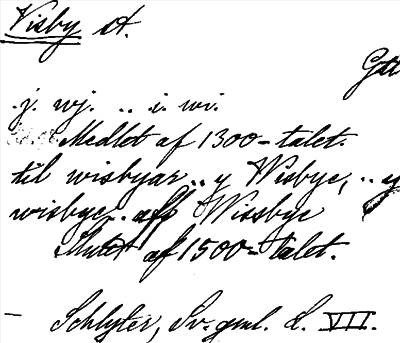 Visby st.
Gtl
.j. wj. .. .i. wi.
Medlet af 1300-talet.
til wisbyar .. y Wisbye, .. y
wisbyer .. aff Wissbye
Slutet af 1500-talet.
— Schlyter, Sv. gml. L. VII.